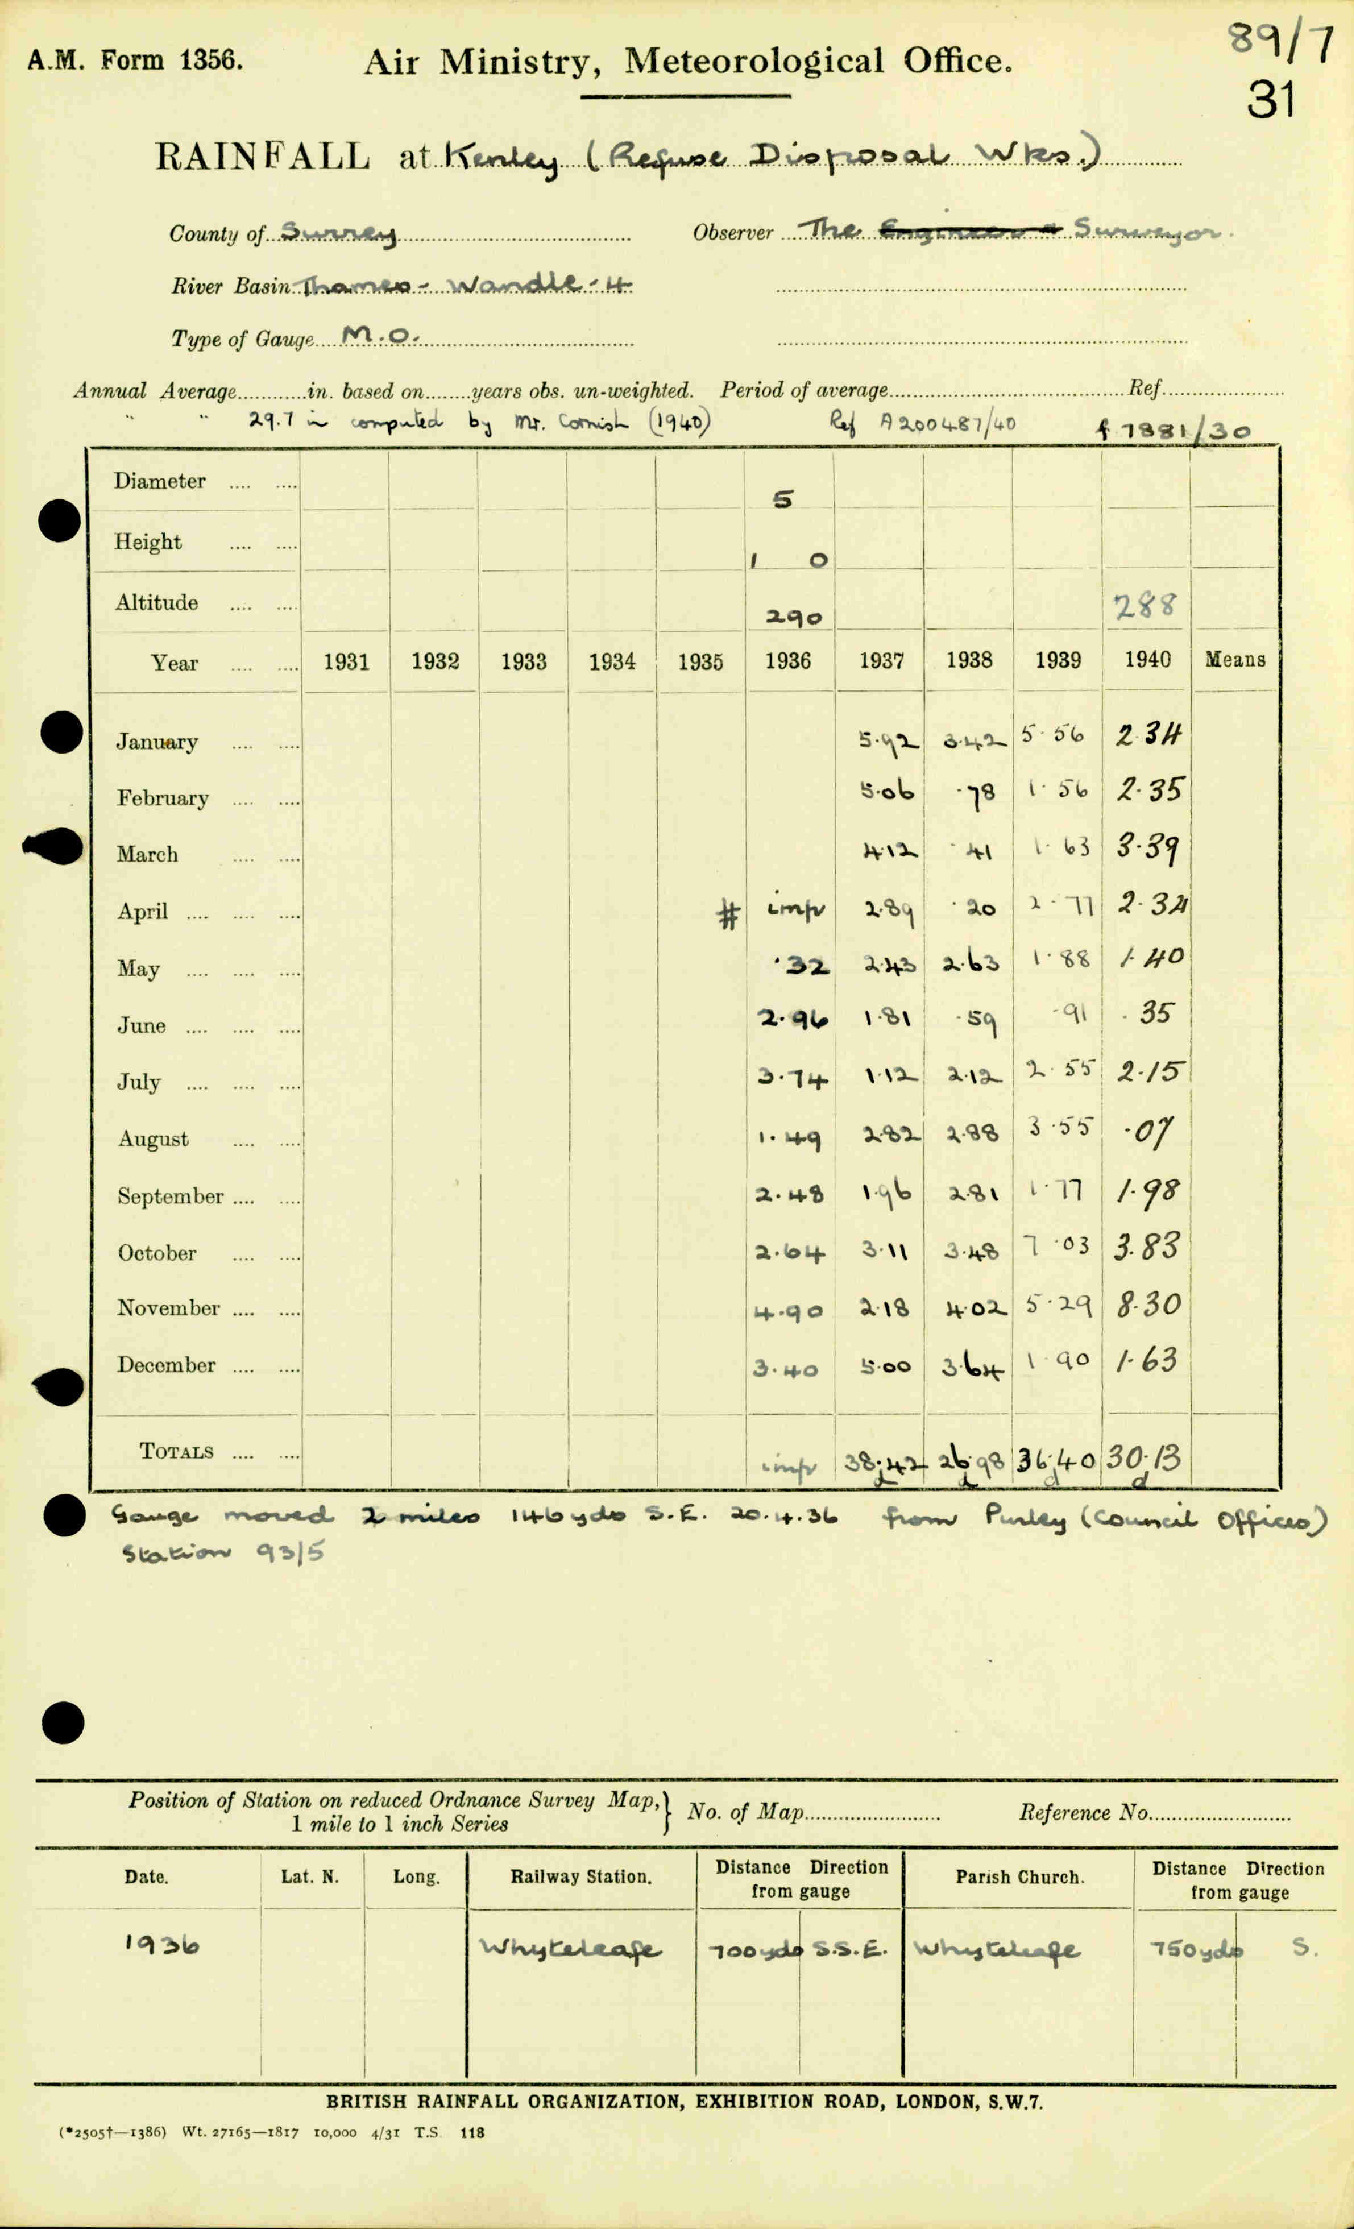 89/7
A.M. Form 1356. Air Ministry, Meteorological Office.
31
RAINFALL at Kenley (Refuse Disposal Wks.)
County of Surrey Observer The Engineer & Surveyor.
River Basin Thames - Wandle - 4
Type of Gauge M.O.
Annual Average in. based on years obs. un-weighted. Period of average Ref
" " 29.7 in computed by Mr. Cornish (1940) Ref A200487/40 f 7881/30
Diameter .... .... 5
Height .... .... 1 0
Altitude .... .... 290 288
Year .... .... 1931 1932 1933 1934 1935 1936 1937 1938 1939 1940 Means
January .... .... 5.92 3.42 5.56 2.34
February .... .... 5.06 .78 1.56 2.35
March .... .... 4.12 .41 1.63 3.39
April .... .... .... # imp 2.89 .20 2.77 2.34
May .... .... .... .32 2.43 2.63 1.88 1.40
June .... .... .... 2.96 1.81 .59 .91 .35
July .... .... .... 3.74 1.12 2.12 2.55 2.15
August .... .... 1.49 2.82 2.88 3.55 .07
September .... .... 2.48 1.96 2.81 1.77 1.98
October .... .... 2.64 3.11 3.48 7.03 3.83
November .... .... 4.90 2.18 4.02 5.29 8.30
December .... .... 3.40 5.00 3.64 1.90 1.63
TOTALS .... .... imp 38.42 26.98 36.40 30.13
d d d d
Gauge moved 2 miles 146 yds S.E. 20.4.36 from Purley (Council Offices)
Station 93/5
Position of Station on reduced Ordnance Survey Map, } No. of Map Reference No.
1 mile to 1 inch Series
Date. Lat. N. Long. Railway Station. Distance Direction from gauge Parish Church. Distance Direction from gauge
1936 Whyteleafe 700 yds S.S.E. Whyteleafe 750 yds S.
BRITISH RAINFALL ORGANIZATION, EXHIBITION ROAD, LONDON, S.W.7.
(*2505†—1386) Wt. 27165—1817 10,000 4/31 T.S. 118